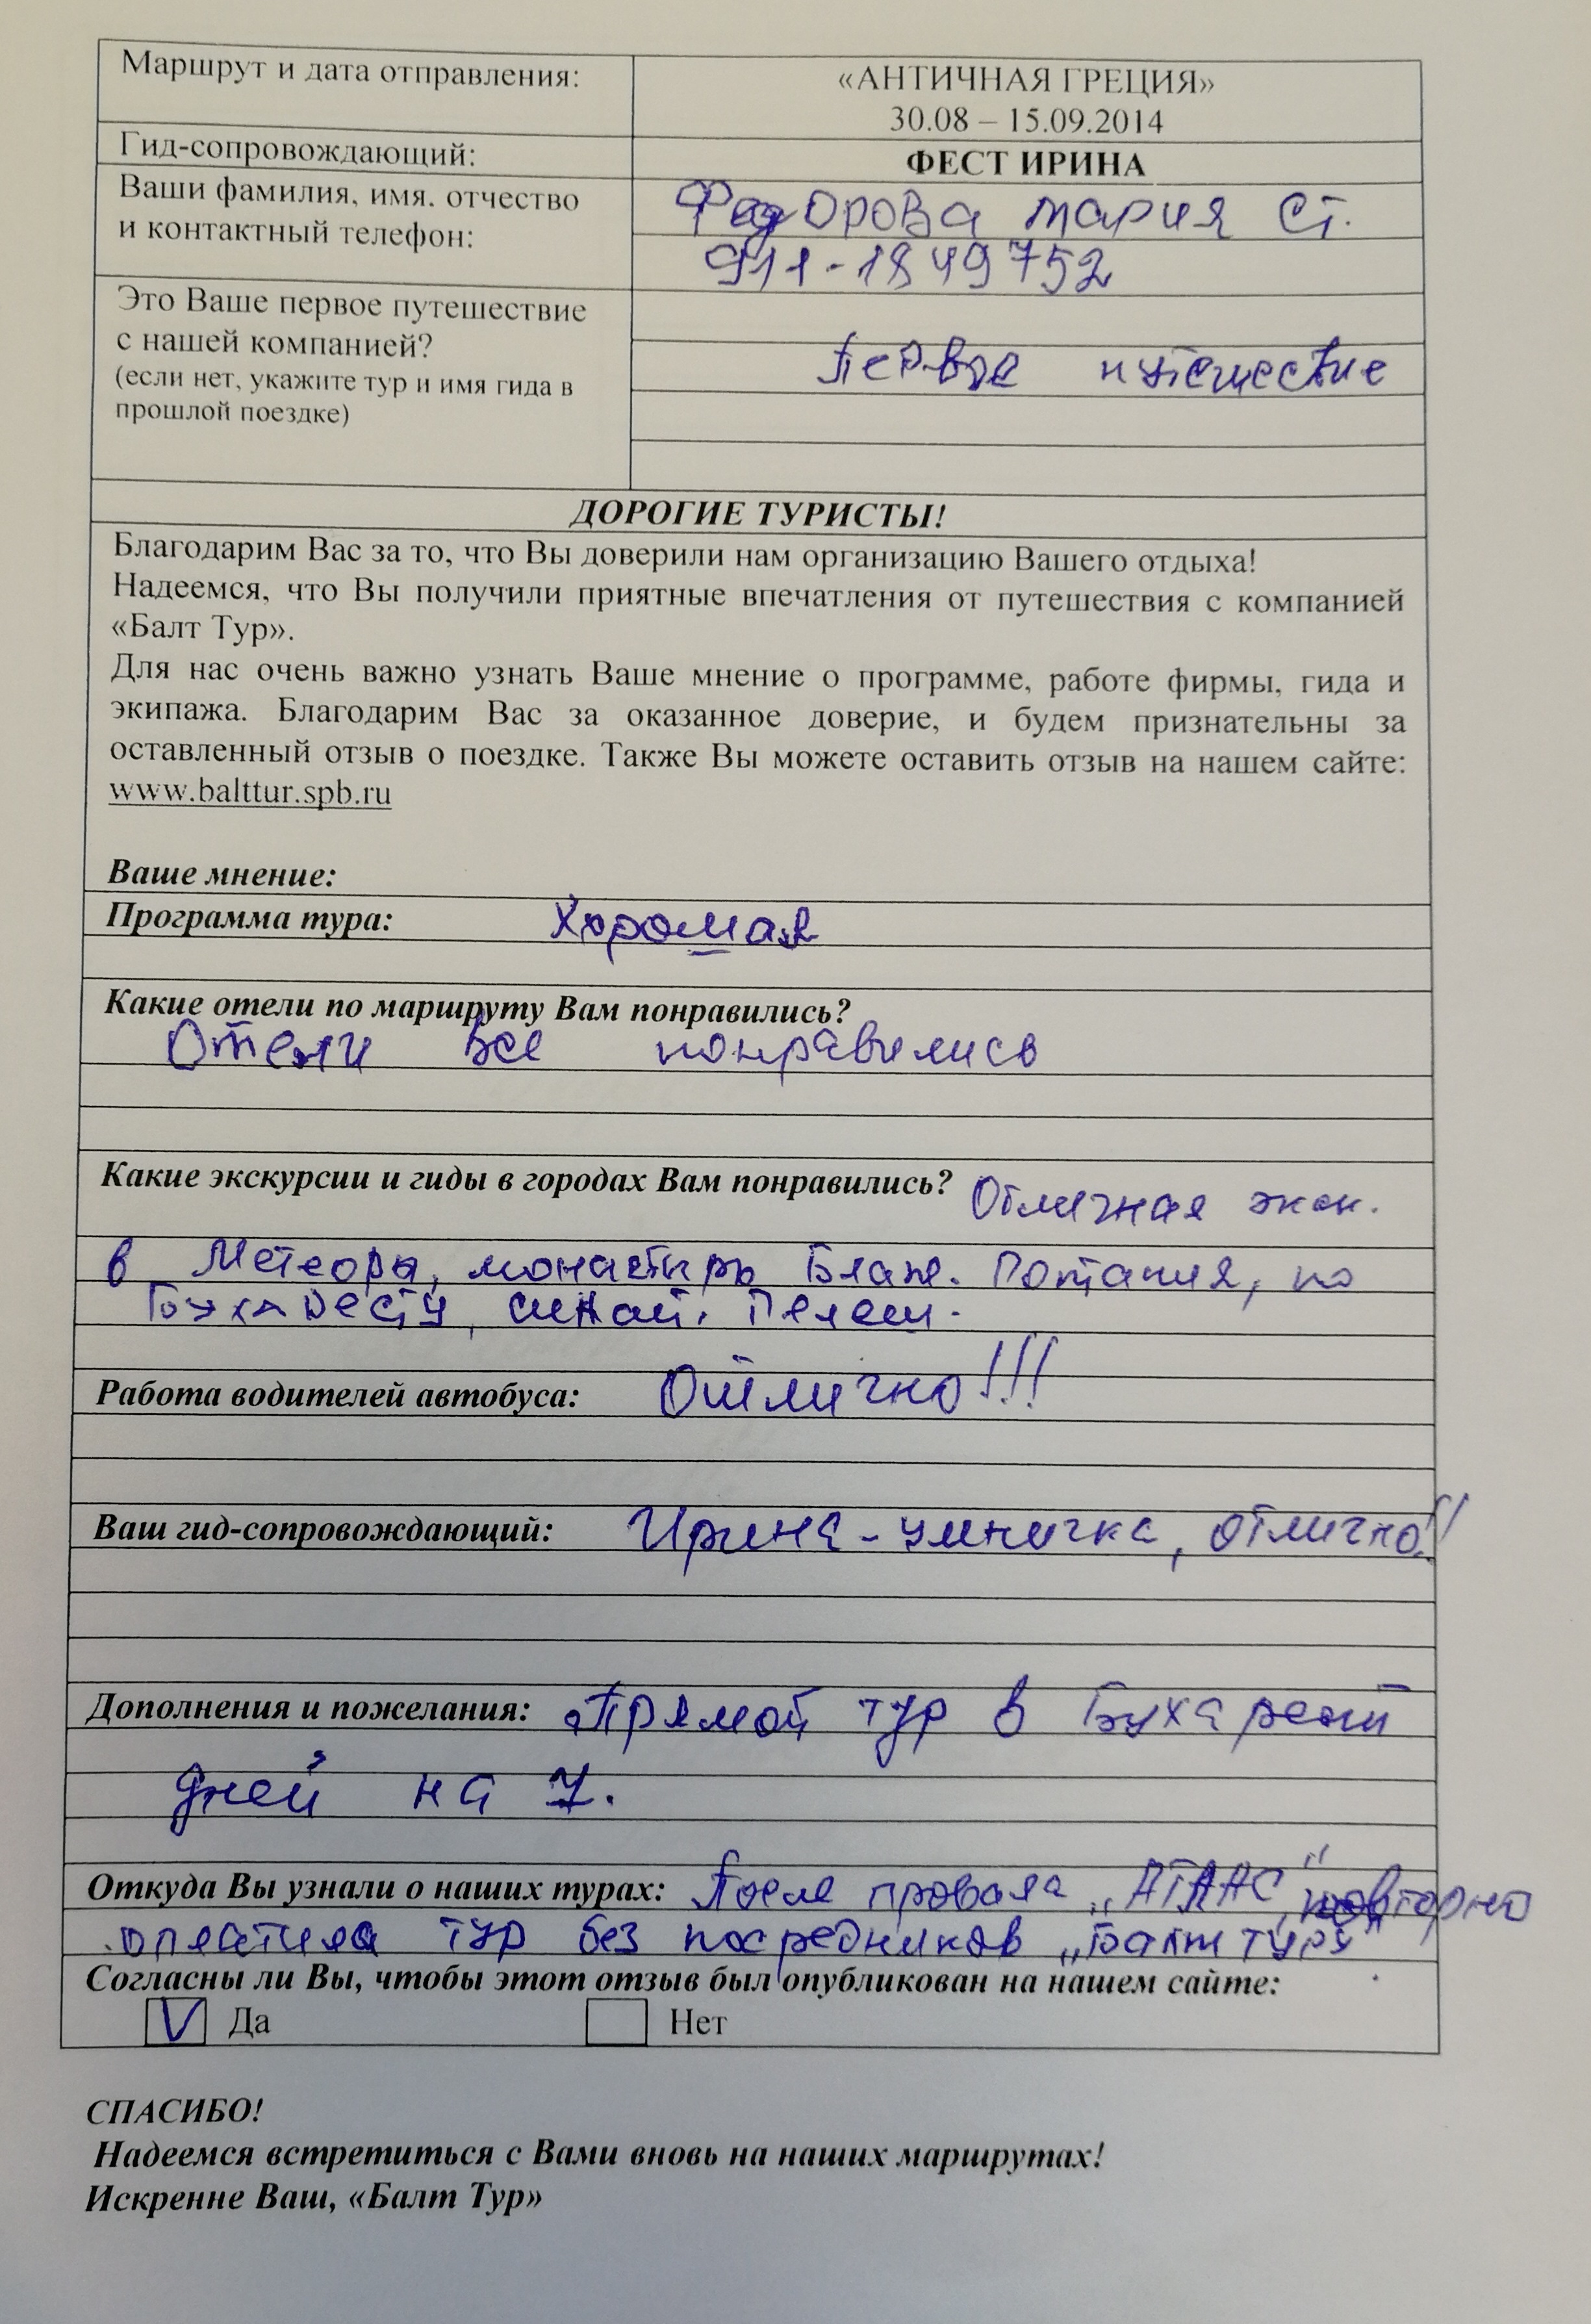 Маршрут и дата отправления:
«АНТИЧНАЯ ГРЕЦИЯ»
30.08 – 15.09.2014
Гид-сопровождающий:
ФЕСТ ИРИНА
Ваши фамилия, имя. отчество
и контактный телефон:
Федорова Мария Ст.
911-1849752
Это Ваше первое путешествие
с нашей компанией?
(если нет, укажите тур и имя гида в
прошлой поездке)
Первое путешествие
ДОРОГИЕ ТУРИСТЫ!
Благодарим Вас за то, что Вы доверили нам организацию Вашего отдыха!
Надеемся, что Вы получили приятные впечатления от путешествия с компанией
«Балт Тур».
Для нас очень важно узнать Ваше мнение о программе, работе фирмы, гида и
экипажа. Благодарим Вас за оказанное доверие, и будем признательны за
оставленный отзыв о поездке. Также Вы можете оставить отзыв на нашем сайте:
www.balttur.spb.ru
Ваше мнение:
Программа тура: Хорошая
Какие отели по маршруту Вам понравились?
Отели все понравились
Какие экскурсии и гиды в городах Вам понравились? Отличная экск.
в Метеоры, монастырь Блаж. Потапия, по
Бухаресту, Пелеш.
Работа водителей автобуса: Отлично!!!
Ваш гид-сопровождающий: Ирина - умничка, отлично!!
Дополнения и пожелания: Прямой тур в Бухарест
дней на 7.
Откуда Вы узнали о наших турах: После провала повторно
оплатила тур без посредников „Балт туру"
Согласны ли Вы, чтобы этот отзыв был опубликован на нашем сайте:
V Да Нет
СПАСИБО!
Надеемся встретиться с Вами вновь на наших маршрутах!
Искренне Ваш, «Балт Тур»